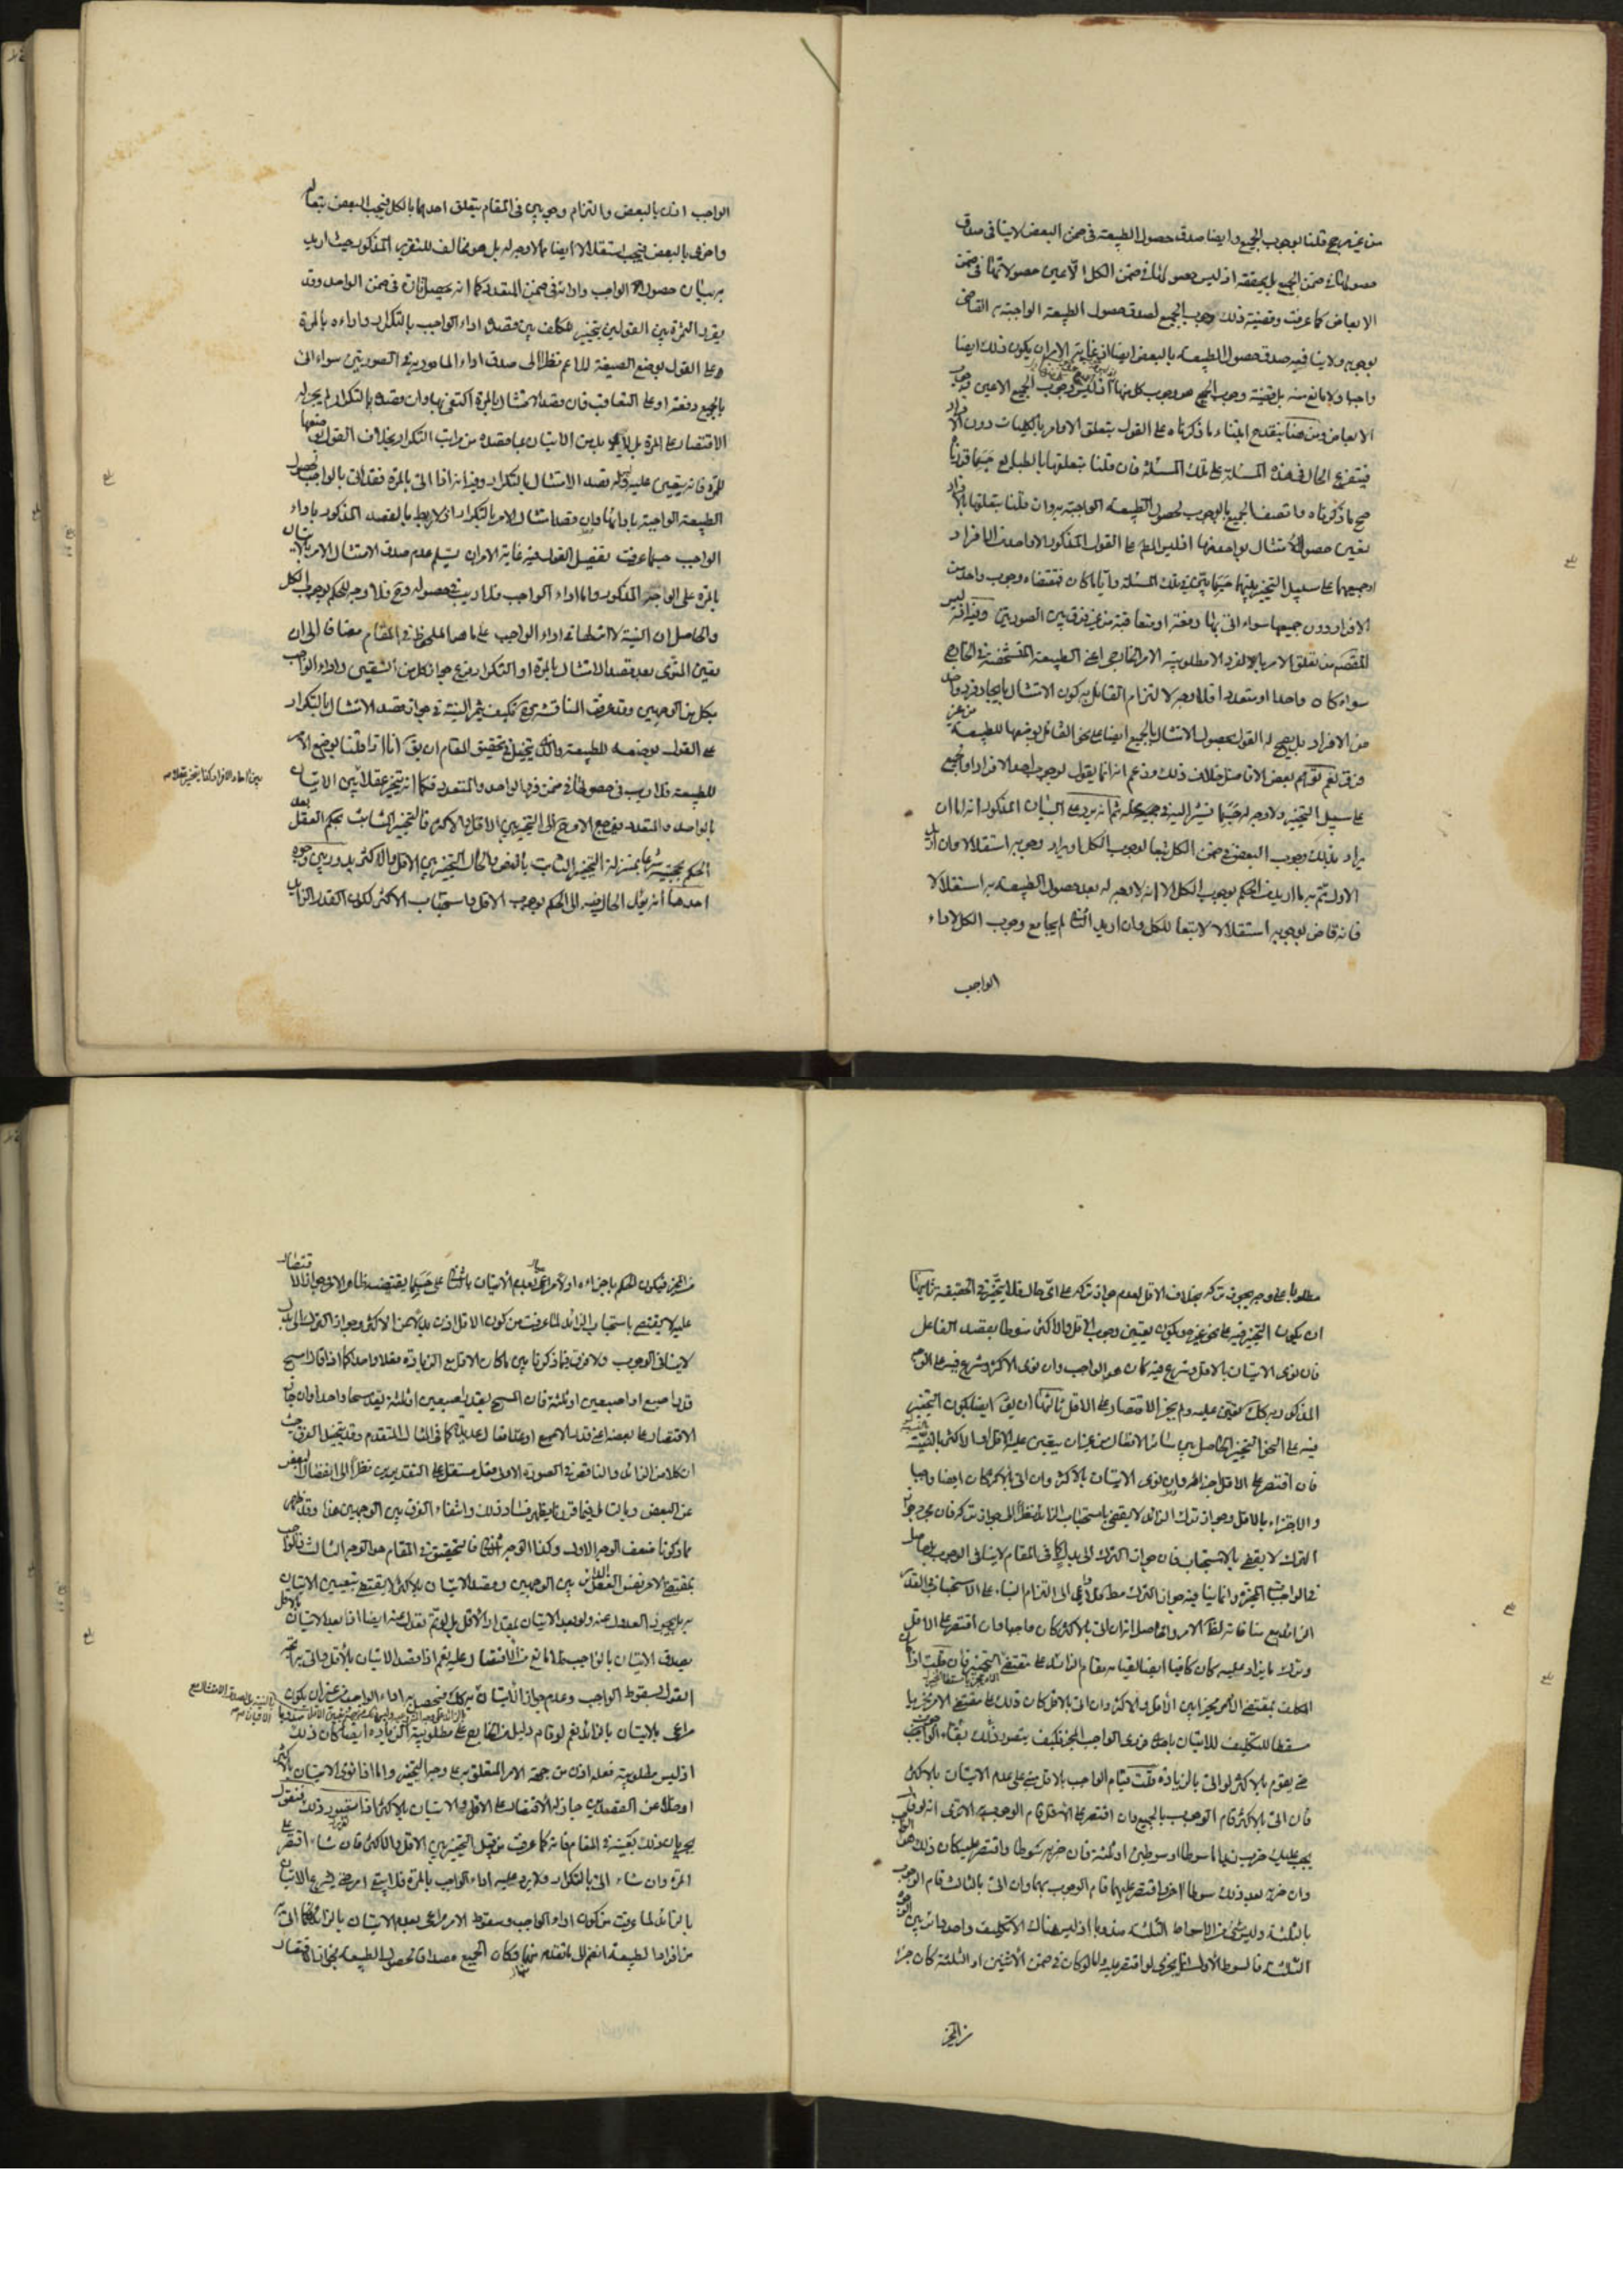 من غير مرجح قلنا بوجوب الجميع وايضا صدق حصول الطبيعة في ضمن البعض لا ينافي صدق
حصولها في ضمن الجميع بل يحققه اذ ليس حصولها في ضمن الكل الا عين حصولاتها في ضمن
الابعاض كما عرفت وقضية ذلك وجوب الجميع لصدق حصول الطبيعة الواجبة به القاضي
بوجوبه ولا ينافيه صدق حصول الطبيعة بالبعض ايضا اذ غاية الامر ان يكون ذلك ايضا
واجبا ولا مانع منه بل قضية وجوب الجميع هو وجوب كل منها اذ ليس وجوب الجميع الا عين وجوب
الابعاض ومن هنا ينقدح ابتناء ما ذكرناه على القول بتعلق الاوامر بالكليات دون الافراد
فيتفرع الحال في هذه المسئلة على تلك المسئلة فان قلنا بتعلقها بالطبايع حسبما قررناه
صح ما ذكرناه واتصف الجميع بالوجوب لحصول الطبيعة الواجبة به وان قلنا بتعلقها بالافراد
تعين حصول الامتثال بواحد منها اذ ليس المط على القول المذكور الا واحد من الافراد
او جميعها على سبيل التخيير بينها حسبما يقرر في تلك المسئلة وايا ما كان فمقتضاه وجوب واحد من
الافراد دون جميعها سواء اتى بها دفعة او متعاقبة من غير فرق بين الصورتين وفيه انه ليس
المقصود من تعلق الامر بالفرد الا مطلوبية الامر الخارجي اعني الطبيعة المتشخصة في الخارج
سواء كان واحدا او متعددا فلا وجه لالتزام القائل به كون الامتثال بايجاد فرد واحد
من الافراد بل يصح له القول بحصول الامتثال بالجميع ايضا على نحو القائل بوضعها للطبيعة من غير
فرق نعم توهم بعض الافاضل خلاف ذلك وزعم انه انما يقول بوجوب احد الافراد او الجميع
على سبيل التخيير ولا وجه له حسبما نشير اليه في محله ثم انه يرد على البيان المذكور انه اما ان
يراد بذلك وجوب البعض في ضمن الكل تبعا لوجوب الكل او يراد وجوبه استقلالا فان اريد
الاول تم به ما اريد من الحكم بوجوب الكل الا انه لا وجه له بعد حصول الطبيعة به استقلالا
فانه قاض بوجوبه استقلالا لا تبعا للكل وان اريد الثاني لم يجامع وجوب الكل لاداء
الواجب
الواجب اذن بالبعض والتزام وجوبين في المقام يتعلق احدهما بالكل فيجب البعض تبعا له
واخرى بالبعض فيجب استقلالا ايضا مما لا وجه له بل هو مخالف للتقرير المذكور حيث اريد
به بيان حصول الواجب وادائه في ضمن المتعدد كما انه يحصل تارة في ضمن الواحد وقد
يقرر الثمرة بين القولين بتخيير المكلف بين قصده اداء الواجب بالتكرار واداءه بالمرة
وعلى القول بوضع الصيغة للاعم نظرا الى صدق اداء المامور به في الصورتين سواء اتى
بالجميع دفعة او على التعاقب فان قصد الامتثال بالمرة اكتفى بها وان قصده بالتكرار لم يجز له
الاقتصار على المرة بل لا بد من الاتيان بما قصده من مراتب التكرار بخلاف القول بوضعها
للمرة فانه يتعين عليه قصد الامتثال بالتكرار وفيه انه اذا اتى بالمرة فقد اتى بالواجب لحصول
الطبيعة الواجبة بادائها وان قصد امتثال الامر بالتكرار اذ لا ربط بالقصد المذكور باداء
الواجب حسبما عرفت تفصيل القول فيه غاية الامر ان يسلم عدم صدق الامتثال الامر بالاتيان
بالمرة على الوجه المذكور واما اداء الواجب فلا ريب في حصوله وح فلا وجه للحكم بوجوب الكل
والحاصل ان النية لا ارتباط لها في اداء الواجب على ما هو الملحوظ في المقام مضافا الى ان
تعين المنوي بعد قصد الامتثال بالمرة او التكرار فرع جواز كل من الشقين واداء الواجب
بكل من الوجهين وقد عرفت المناقشة فيه فكيف يثمر النية في جواز قصد الامتثال بالتكرار
على القول بوضعه للطبيعة والذي يتخيل في تحقيق المقام ان يق انا اذا قلنا بوضع الامر
للطبيعة فلا ريب في حصولها في ضمن فردها الواحد والمتعدد فكما انه يتخير عقلا بين الاتيان
بين احاد الافراد كذا يتخير عقلا
بالواحد والمتعدد فيرجع الامر ح الى التخيير بين الاقل والاكثر فالتخيير الثابت بحكم العقل بعد
الحكم بحجيته شرعا بمنزلة التخيير الثابت بالنص والحال في التخيير بين الاقل والاكثر يدور بين وجوه
احدها انه يؤل الحال فيه الى الحكم بوجوب الاقل واستحباب الاكثر لكون القدر الزايد
مطلوبا على وجه يجوز تركه بخلاف الاقل لعدم جواز تركه على اي حال فلا تخيير في الحقيقة ثانيها
ان يكون التخيير فيه على نحو غيره ويكون تعيين وجوب الاقل والاكثر منوطا بقصد الفاعل
فان نوى الاتيان بالاقل وشرع فيه كان هو الواجب وان نوى الاكثر وشرع فيه على الوجه
المذكور وجب كك تعين عليه ولم يجز الاقتصار على الاقل ثالثها ان يق ايضا بكون التخيير
فيه على النحو التخيير الحاصل بين سائر الافعال من غير ان يتعين عليه الاقل او الاكثر بالنية
فان اقتصر على الاقل اجزاه وان نوى الاتيان بالاكثر وان اتى بالاكثر كان ايضا واجبا
والاجتزاء بالاقل وجواز ترك الزائد لا يقضي باستحباب الزائد نظرا الى جواز تركه فان مجرد جواز
الترك لا يقضي بالاستحباب فان جواز الترك الى بدل كما في المقام لا ينافي الوجوب لحصول
في الواجبات المخيرة وانما ينافيه جواز الترك مط فلا داعي الى التزام البناء على الاستحباب في القدر
الزائد مع منافاته لظ الامر والحاصل انه ان اتى بالاكثر كان واجبا وان اقتصر على الاقل
وترك ما يزاد عليه كان كافيا ايضا لقيامه مقام الزائد على مقتضى التخيير فان قلت اذا كان
المكلف بمقتضى الامر مخيرا بين الاقل والاكثر وان اتى بالاقل كان ذلك على مقتضى الامر مجزيا
مسقطا للتكليف للاتيان باحد فردي الواجب المخير فكيف يتصور ذلك بقاء الوجوب
حتى يقوم بالاكثر لو اتى بالزيادة قلت قيام الواجب بالاقل مبني على عدم الاتيان بالاكثر
فان اتى بالاكثر قام الوجوب بالجميع وان اقتصر على الاقل قام الوجوب به الا ترى انه لو قال
يجب عليك ضرب زيد اما سوطا او سوطين او ثلثة فان ضربه سوطا واقتصر عليه كان ذلك هو الواجب
وان ضربه بعد ذلك سوطا اخر واقتصر عليهما قام الوجوب بهما وان اتى بالثالث قام الوجوب
بالثلثة وليس شيء من الاسواط الثلثة مندوبا اذ ليس هناك الا تكليف واحد دائر بين الوجوه
الثلثة فالسوط الاول انما يجزي لو اقتصر عليه واما لو كان في ضمن الاثنين او الثلثة كان جزءا
من المجزي
من المجزي فيكون الحكم باجزاءه اولا مراعى بعدم الاتيان بالثاني على حسبما يقتضيه ظاهر الامر وجواز الاقتصار
عليه لا يقتضي باستحباب الزائد لما عرفت من كون الاقل اذن بدلا عن الاكثر وجواز الترك الى بدل
لا ينافي الوجوب ولا فرق فيما ذكرنا بين ما كان الاقل مع الزيادة فعلا واحدا كما اذا قال امسح
قدر اصبع او اصبعين او ثلثة فان المسح بقدر اصبعين او ثلثة يعد مسحا واحدا وان جاز
الاقتصار على بعضه اعني قدر الاصبع او افعالا عديدة كما في المثال المتقدم وقد يتخيل الفرق حيث
ان كلا من الزائد والناقص في الصورة الاولى فعل مستقل على التقديرين نظرا الى انفصال البعض
عن البعض وبالتامل فيما قررنا يظهر فساد ذلك وانتفاء الفرق بين الوجهين هذا وقد ظهر
مما ذكرنا ضعف الوجه الاول وكذا الوجه الثاني فالتحقيق في المقام هو الوجه الثالث فالواجب
بمقتضى الامر نفس الفعل الدائر بين الوجهين وقصد الاتيان بالاكثر لا يقتضي بتعيين الاتيان
به بل يجوز العدول عنه ولو بعد الاتيان بمقدار الاقل بل لو لم يعدل عنه ايضا اذا بعد الاتيان بالاقل
يصدق الاتيان بالواجب فلا مانع من الاقتصار عليه نعم اذا قصد الاتيان بالاقل واتى به اتجه
القول بسقوط الواجب وعدم جواز الاتيان به كك لحصول اداء الواجب من غير ان يكون
مراعى بالاتيان بالزائد نعم لو قام دليل من الخارج على مطلوبية الزيادة ايضا كان ذلك
اذ ليس مطلوبية فعله اذن من جهة الامر المتعلق به على وجه التخيير واما اذا نوى الاتيان بالاكثر
او خلا عن القصدين جاز له الاقتصار على الاقل والاتيان بالاكثر اذا تقرر ذلك فنقول
بجريان ذلك بعينه في المقام فانه كما عرفت من قبيل التخيير بين الاقل والاكثر فان شاء اقتصر على
المرة وان شاء اتى بالتكرار ولا يرد عليه اداء الواجب بالمرة فلا يبقى امر حتى يشرع الاتيان
بالزائد لما عرفت من كون اداء الواجب وسقوط الامر مراعى بعدم الاتيان بالزائد فاذا اتى به
من افراد الطبيعة انضم الى ما تقدم منها وكان الجميع مصداقا لحصول الطبيعة بخلاف اقتصار